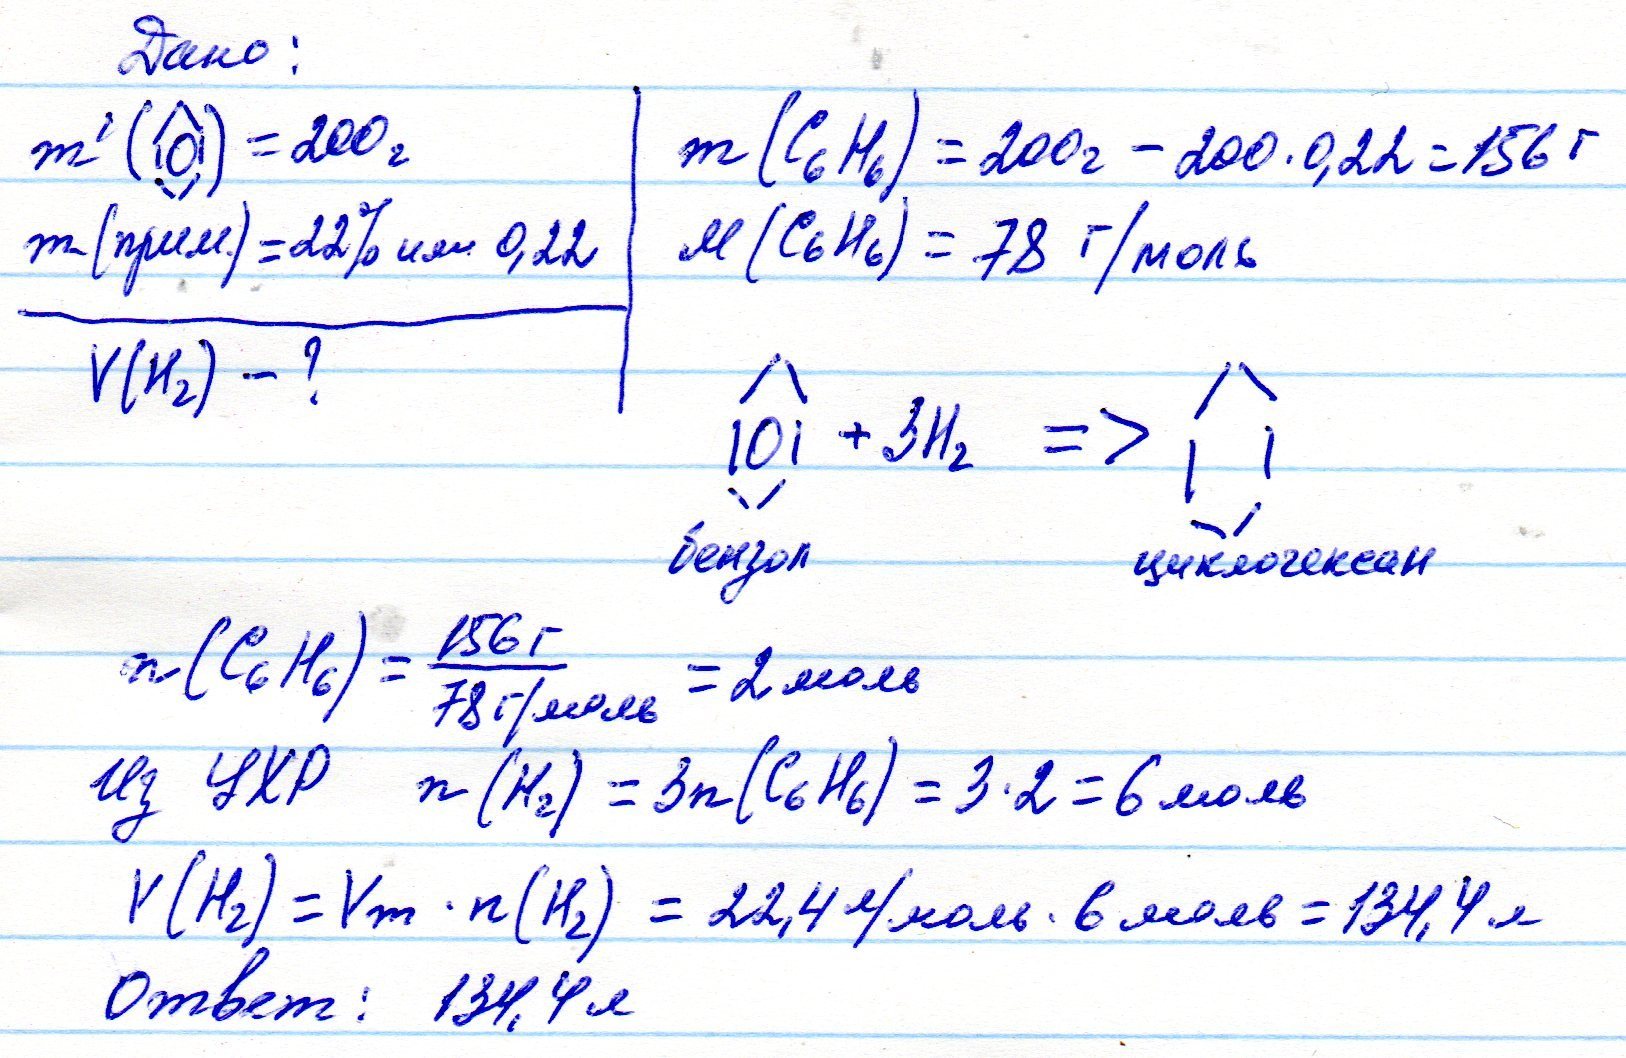 Дано:
m'(⌬) = 200г
m(прим.) = 22% или 0,22
V(H₂) – ?
m(C₆H₆) = 200г – 200·0,22 = 156 г
M(C₆H₆) = 78 г/моль
+ 3H₂ =>
бензол циклогексан
n(C₆H₆) = 156 г / 78 г/моль = 2 моль
Из УХР n(H₂) = 3n(C₆H₆) = 3·2 = 6 моль
V(H₂) = Vm · n(H₂) = 22,4 л/моль · 6 моль = 134,4 л
Ответ: 134,4 л